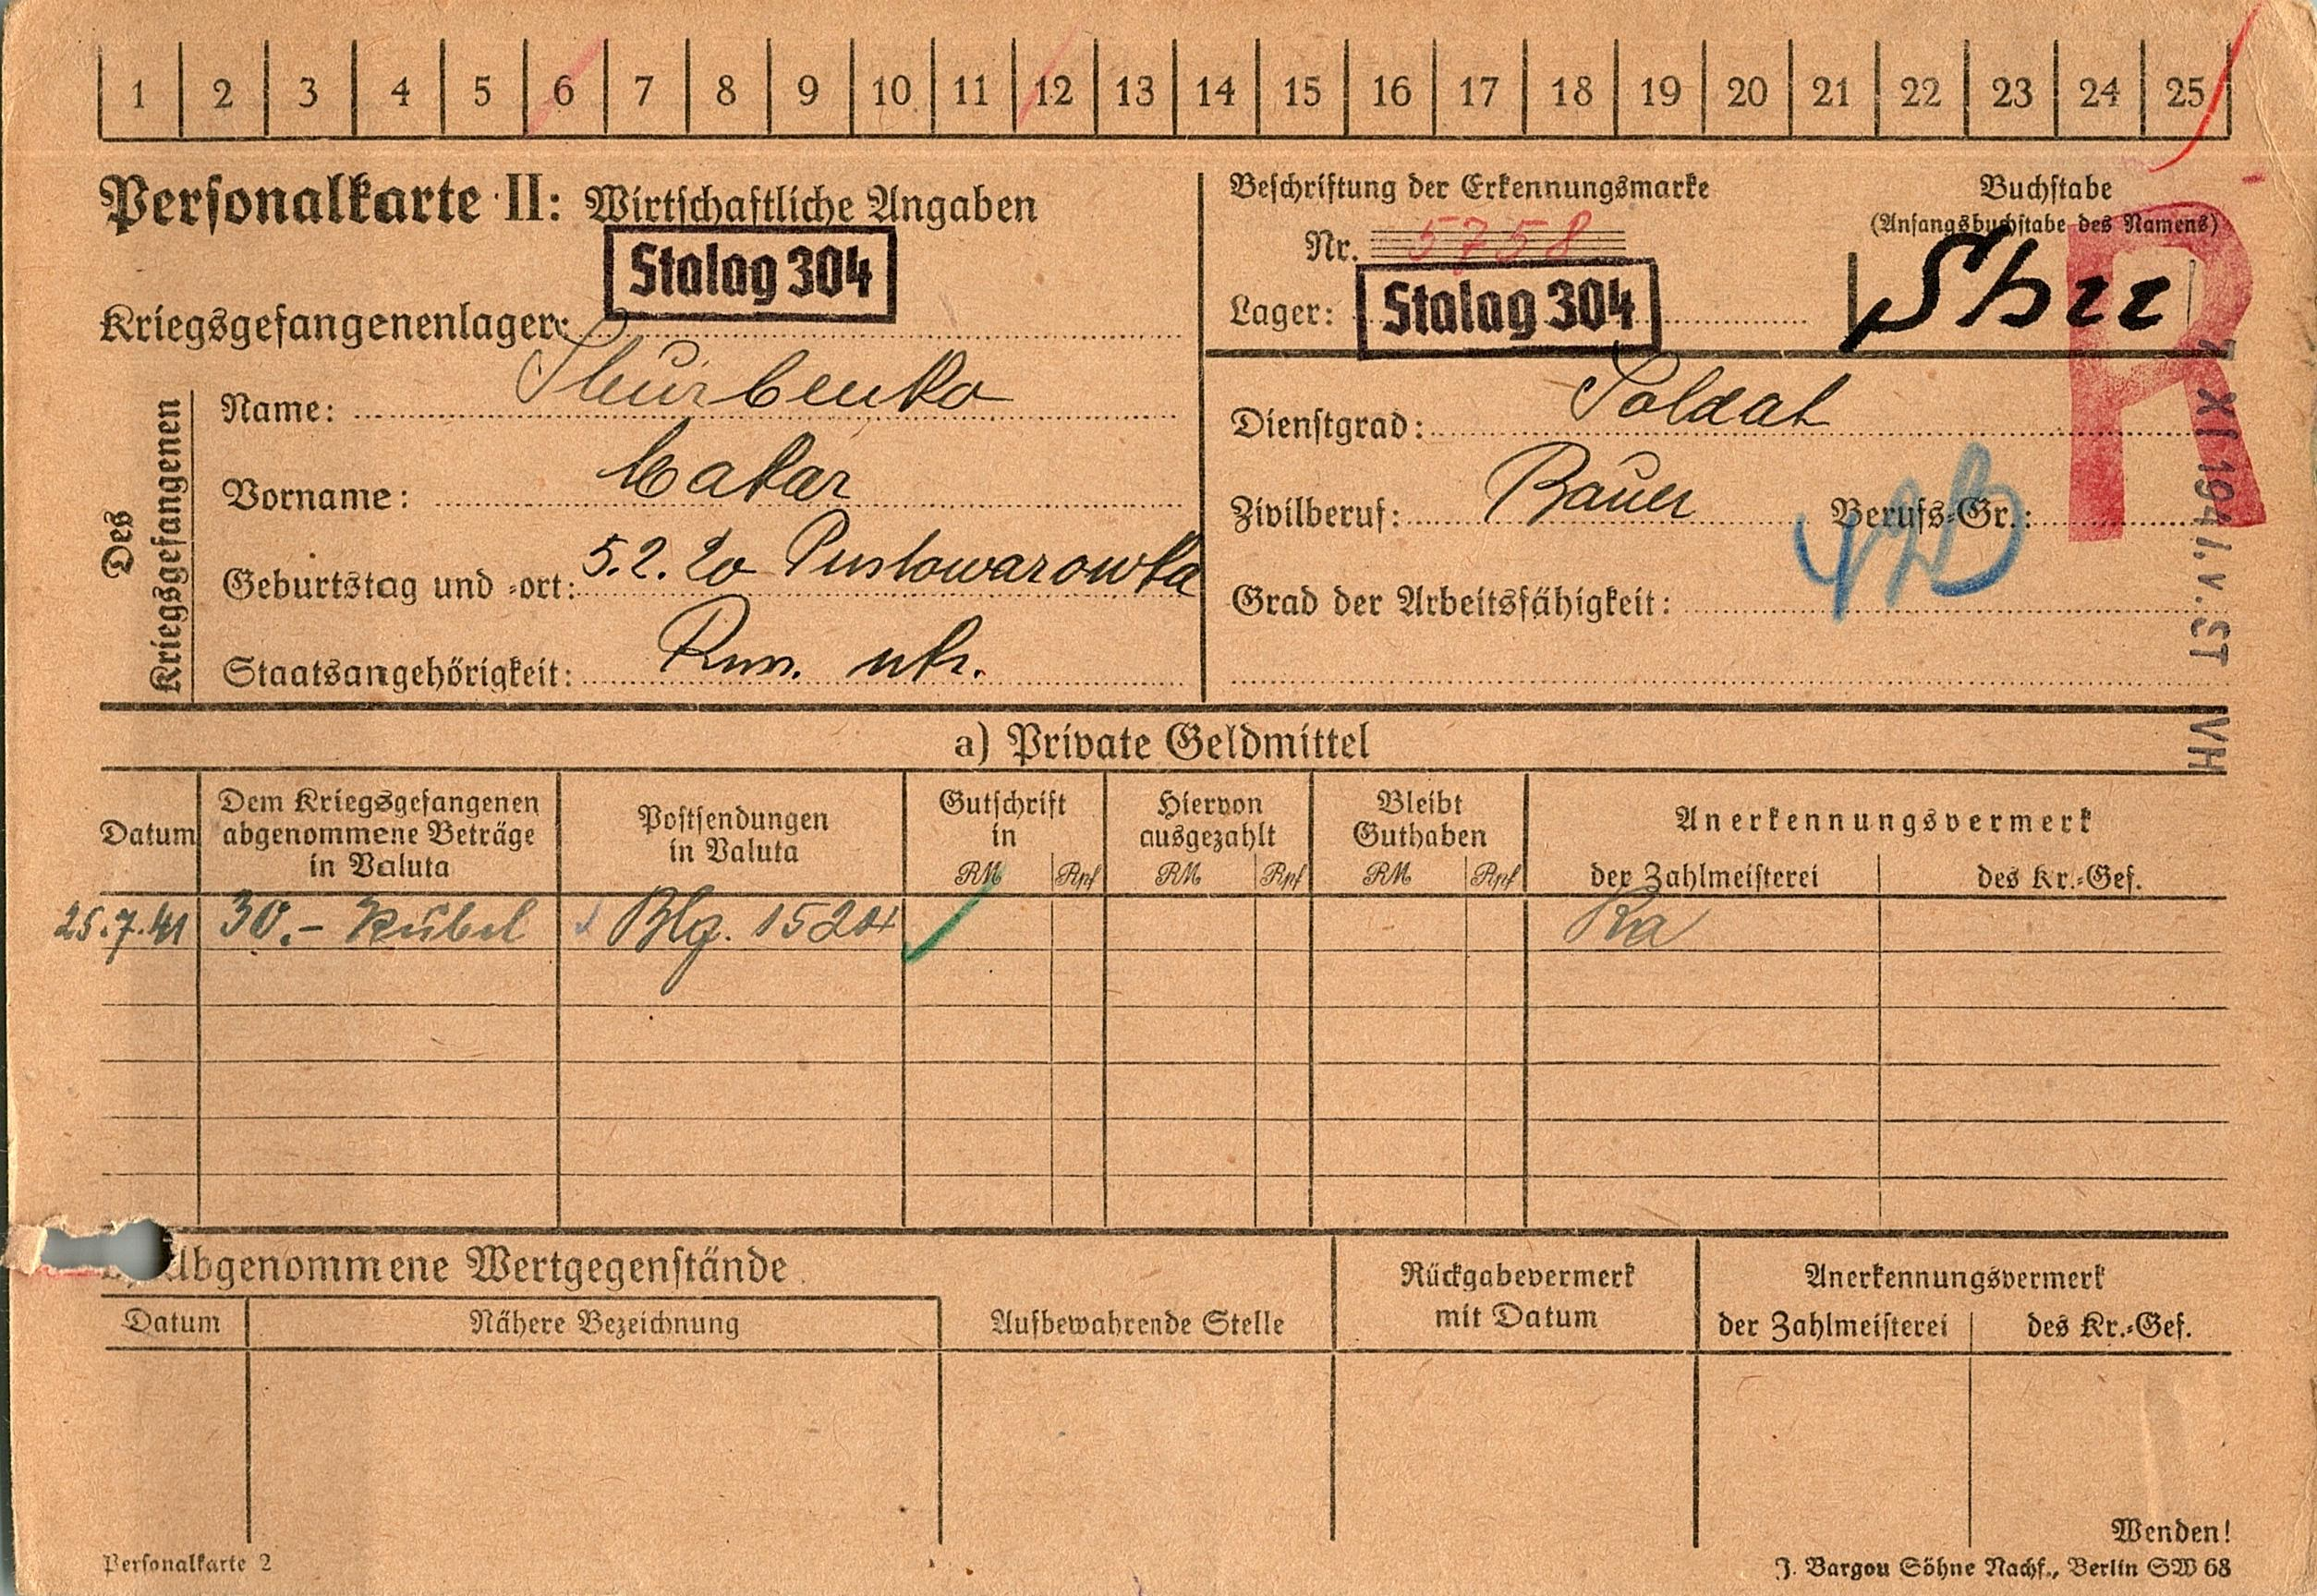 1 2 3 4 5 6 7 8 9 10 11 12 13 14 15 16 17 18 19 20 21 22 23 24 25
Personalkarte II: Wirtschaftliche Angaben
Stalag 304
Kriegsgefangenenlager:
Beschriftung der Erkennungsmarke
Nr. 5758
Lager: Stalag 304
Buchstabe
(Anfangsbuchstabe des Namens)
R
Des Kriegsgefangenen
Name:
Vorname: Makar
Geburtstag und -ort: 5.2.20 Pustowarowka
Staatsangehörigkeit: Russ. ukr.
Dienstgrad: Soldat
Zivilberuf: Bauer Berufs-Gr.:
Grad der Arbeitsfähigkeit:
7 XI 194
ST IVH
a) Private Geldmittel
Datum
Dem Kriegsgefangenen
abgenommene Beträge
in Valuta
Postsendungen
in Valuta
Gutschrift
in
RM Rpf
Hiervon
ausgezahlt
RM Rpf
Bleibt
Guthaben
RM Rpf
Anerkennungsvermerk
der Zahlmeisterei des Kr.-Gef.
25.7.41 30.- Rubel Blg. 1520
Abgenommene Wertgegenstände
Datum Nähere Bezeichnung
Aufbewahrende Stelle
Rückgabevermerk
mit Datum
Anerkennungsvermerk
der Zahlmeisterei des Kr.-Gef.
Wenden!
Personalkarte 2
J. Bargou Söhne Nachf., Berlin SW 68